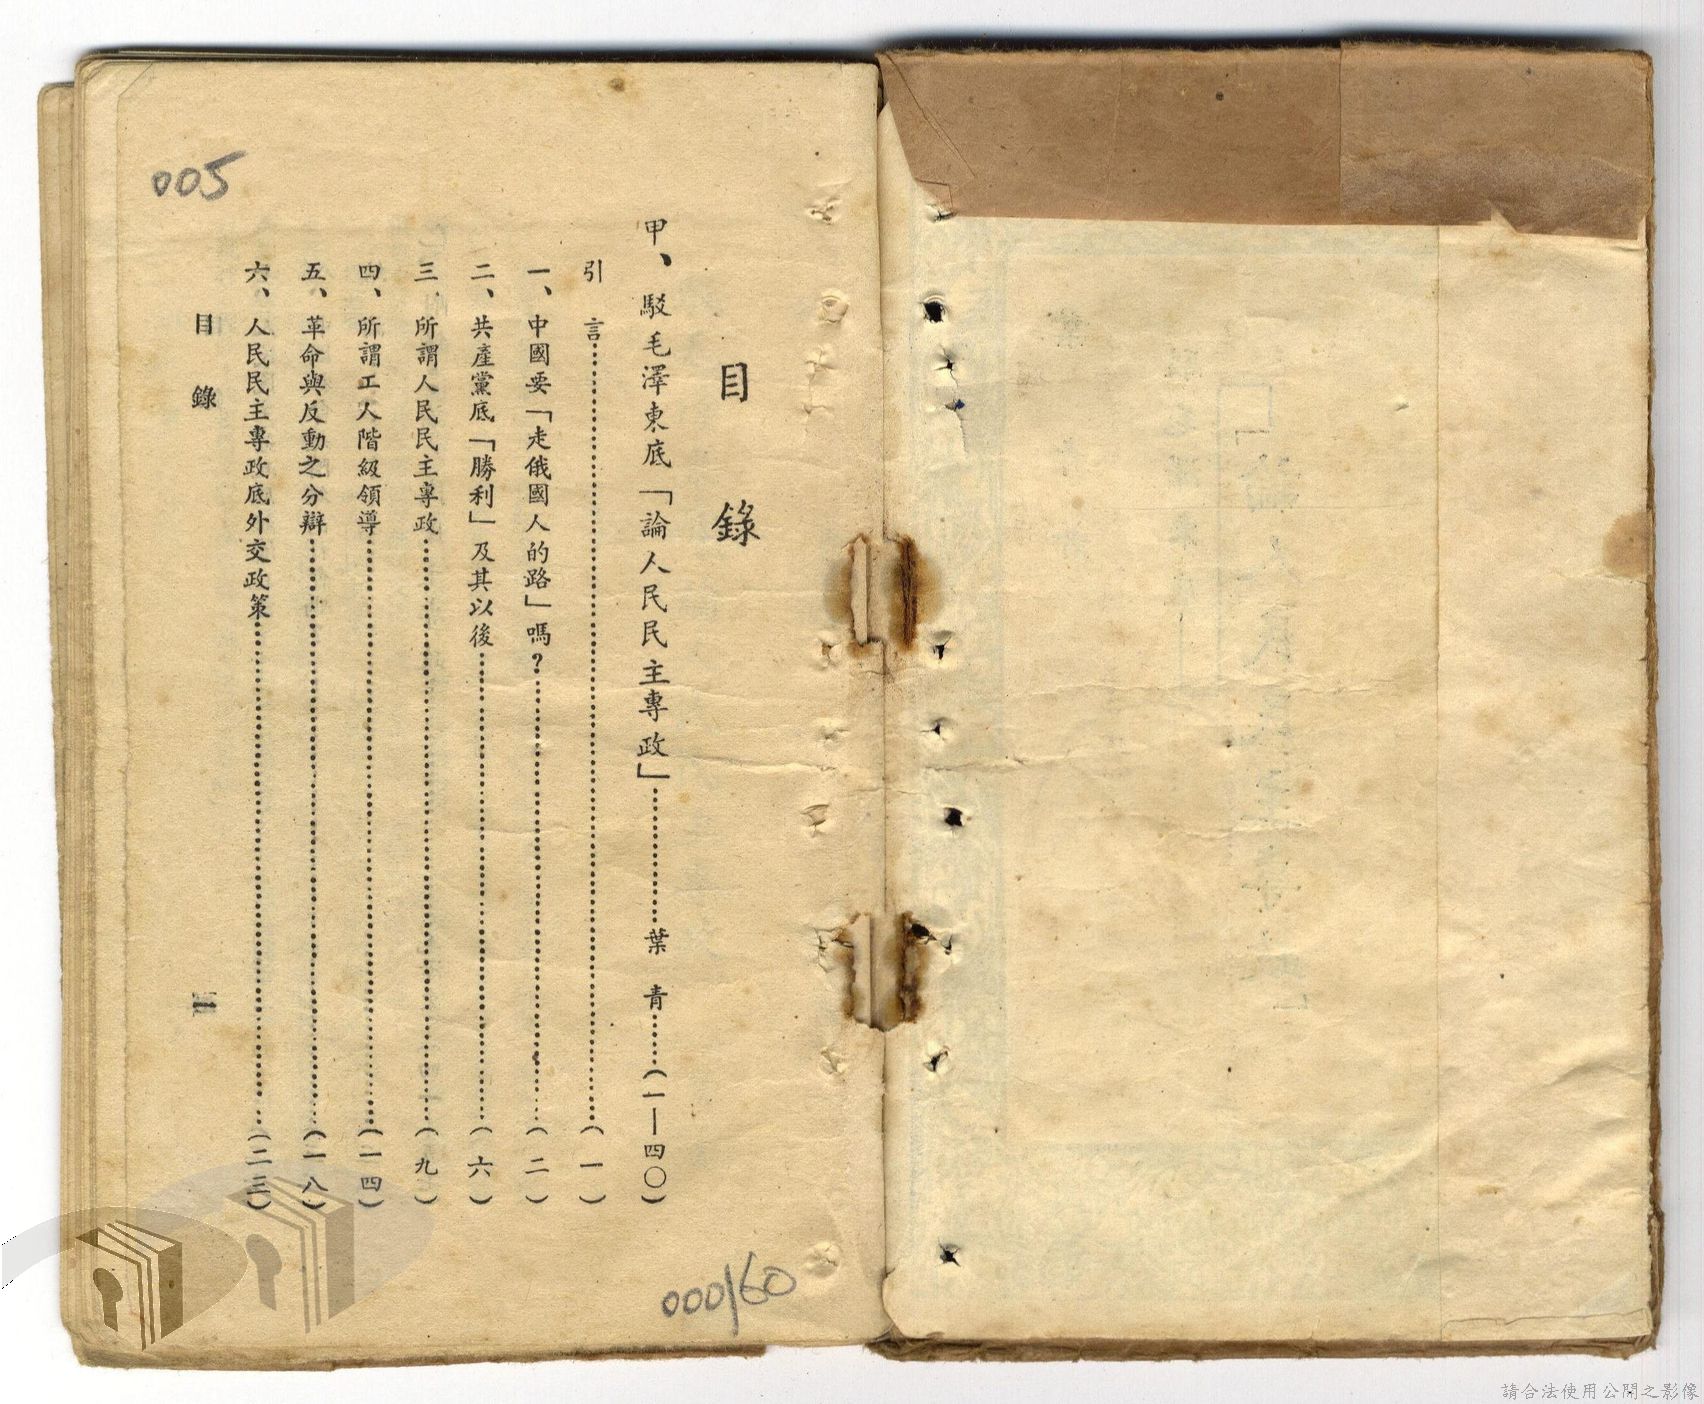 目錄
甲、駁毛澤東底「論人民民主專政」……………葉青……(一—四〇)
引言……………………………(一)
一、中國要「走俄國人的路」嗎?……………………………(二)
二、共產黨底「勝利」及其以後……………………………(六)
三、所謂人民民主專政……………………………(九)
四、所謂工人階級領導……………………………(一四)
五、革命與反動之分辯……………………………(一八)
六、人民民主專政底外交政策……………………………(二三)
目錄
005
000160
請合法使用公開之影像